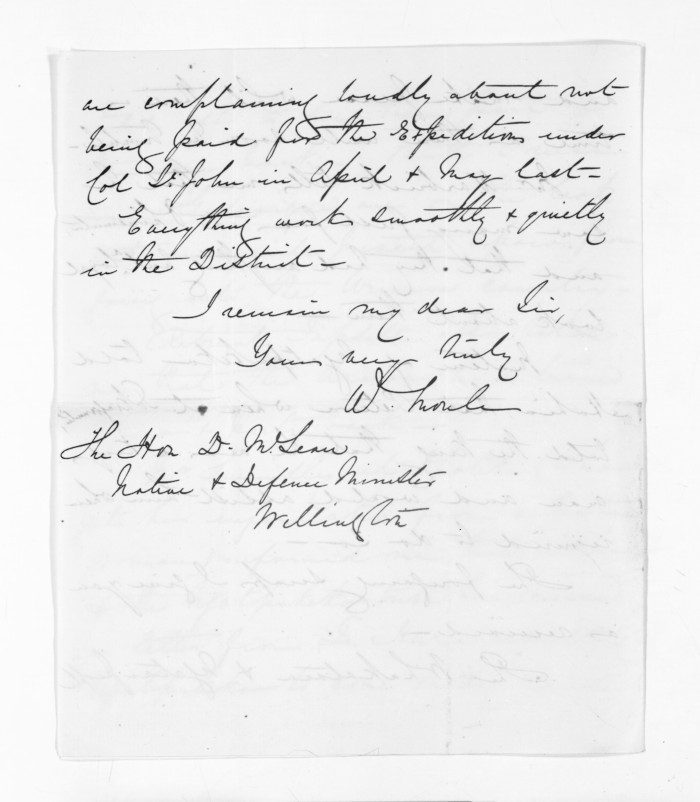 are complaining loudly about not
being paid for the Expedition under
Col St. John in April & May last—
Everything works smoothly & quietly
in the District—
I remain my dear Sir,
Yours very truly
W. Moule
The Hon D. McLean
Native & Defence Minister
Wellington